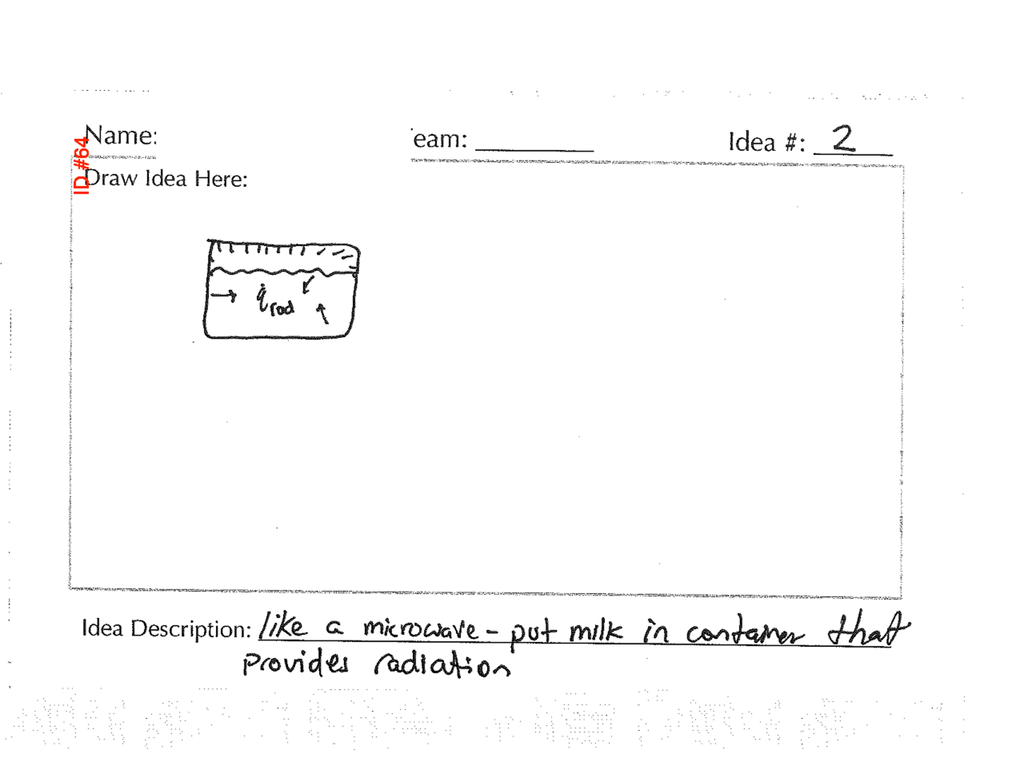 Name: eam: Idea #: 2
ID #64
Draw Idea Here:
q̇rad
Idea Description: like a microwave - put milk in container that
provides radiation